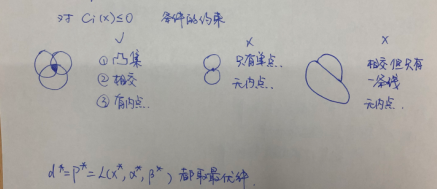 对 Ci(x)≤0 条件的约束
✓
① 凸集
② 相交
③ 有内点.
×
只有单点.
无内点
×
相交但只有
一条线
无内点.
d*=P*=L(x*, α*, β*) 都取最优解.